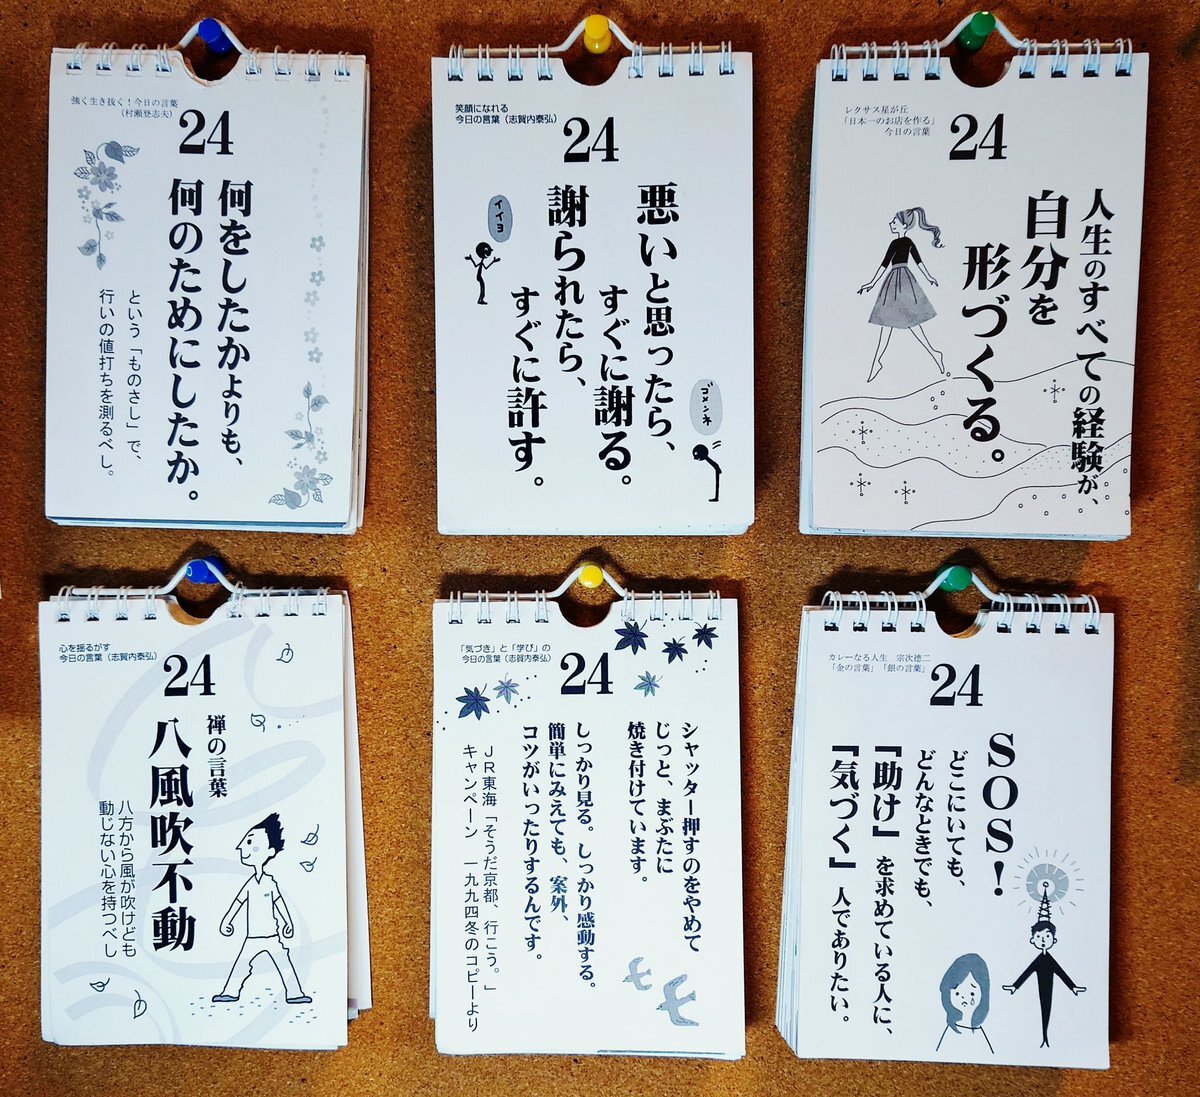 強く生き抜く！今日の言葉
（村瀬登志夫）
24
何をしたかよりも、
何のためにしたか。
という「ものさし」で、
行いの値打ちを測るべし。
笑顔になれる
今日の言葉（志賀内泰弘）
24
悪いと思ったら、
すぐに謝る。
謝られたら、
すぐに許す。
イイヨ
ゴメンネ
レクサス星が丘
「日本一のお店を作る」
今日の言葉
24
人生のすべての経験が、
自分を
形づくる。
心を揺るがす
今日の言葉（志賀内泰弘）
24
禅の言葉
八風吹不動
八方から風が吹けども
動じない心を持つべし
「気づき」と「学び」の
今日の言葉（志賀内泰弘）
24
シャッター押すのをやめて
じっと、まぶたに
焼き付けています。
しっかり見る。しっかり感動する。
簡単にみえても、案外、
コツがいったりするんです。
JR東海「そうだ京都、行こう。」
キャンペーン　一九九四冬のコピーより
カレーなる人生　宗次徳二
「金の言葉」「銀の言葉」
24
SOS！
どこにいても、
どんなときでも、
『助け』を求めている人に、
『気づく』人でありたい。